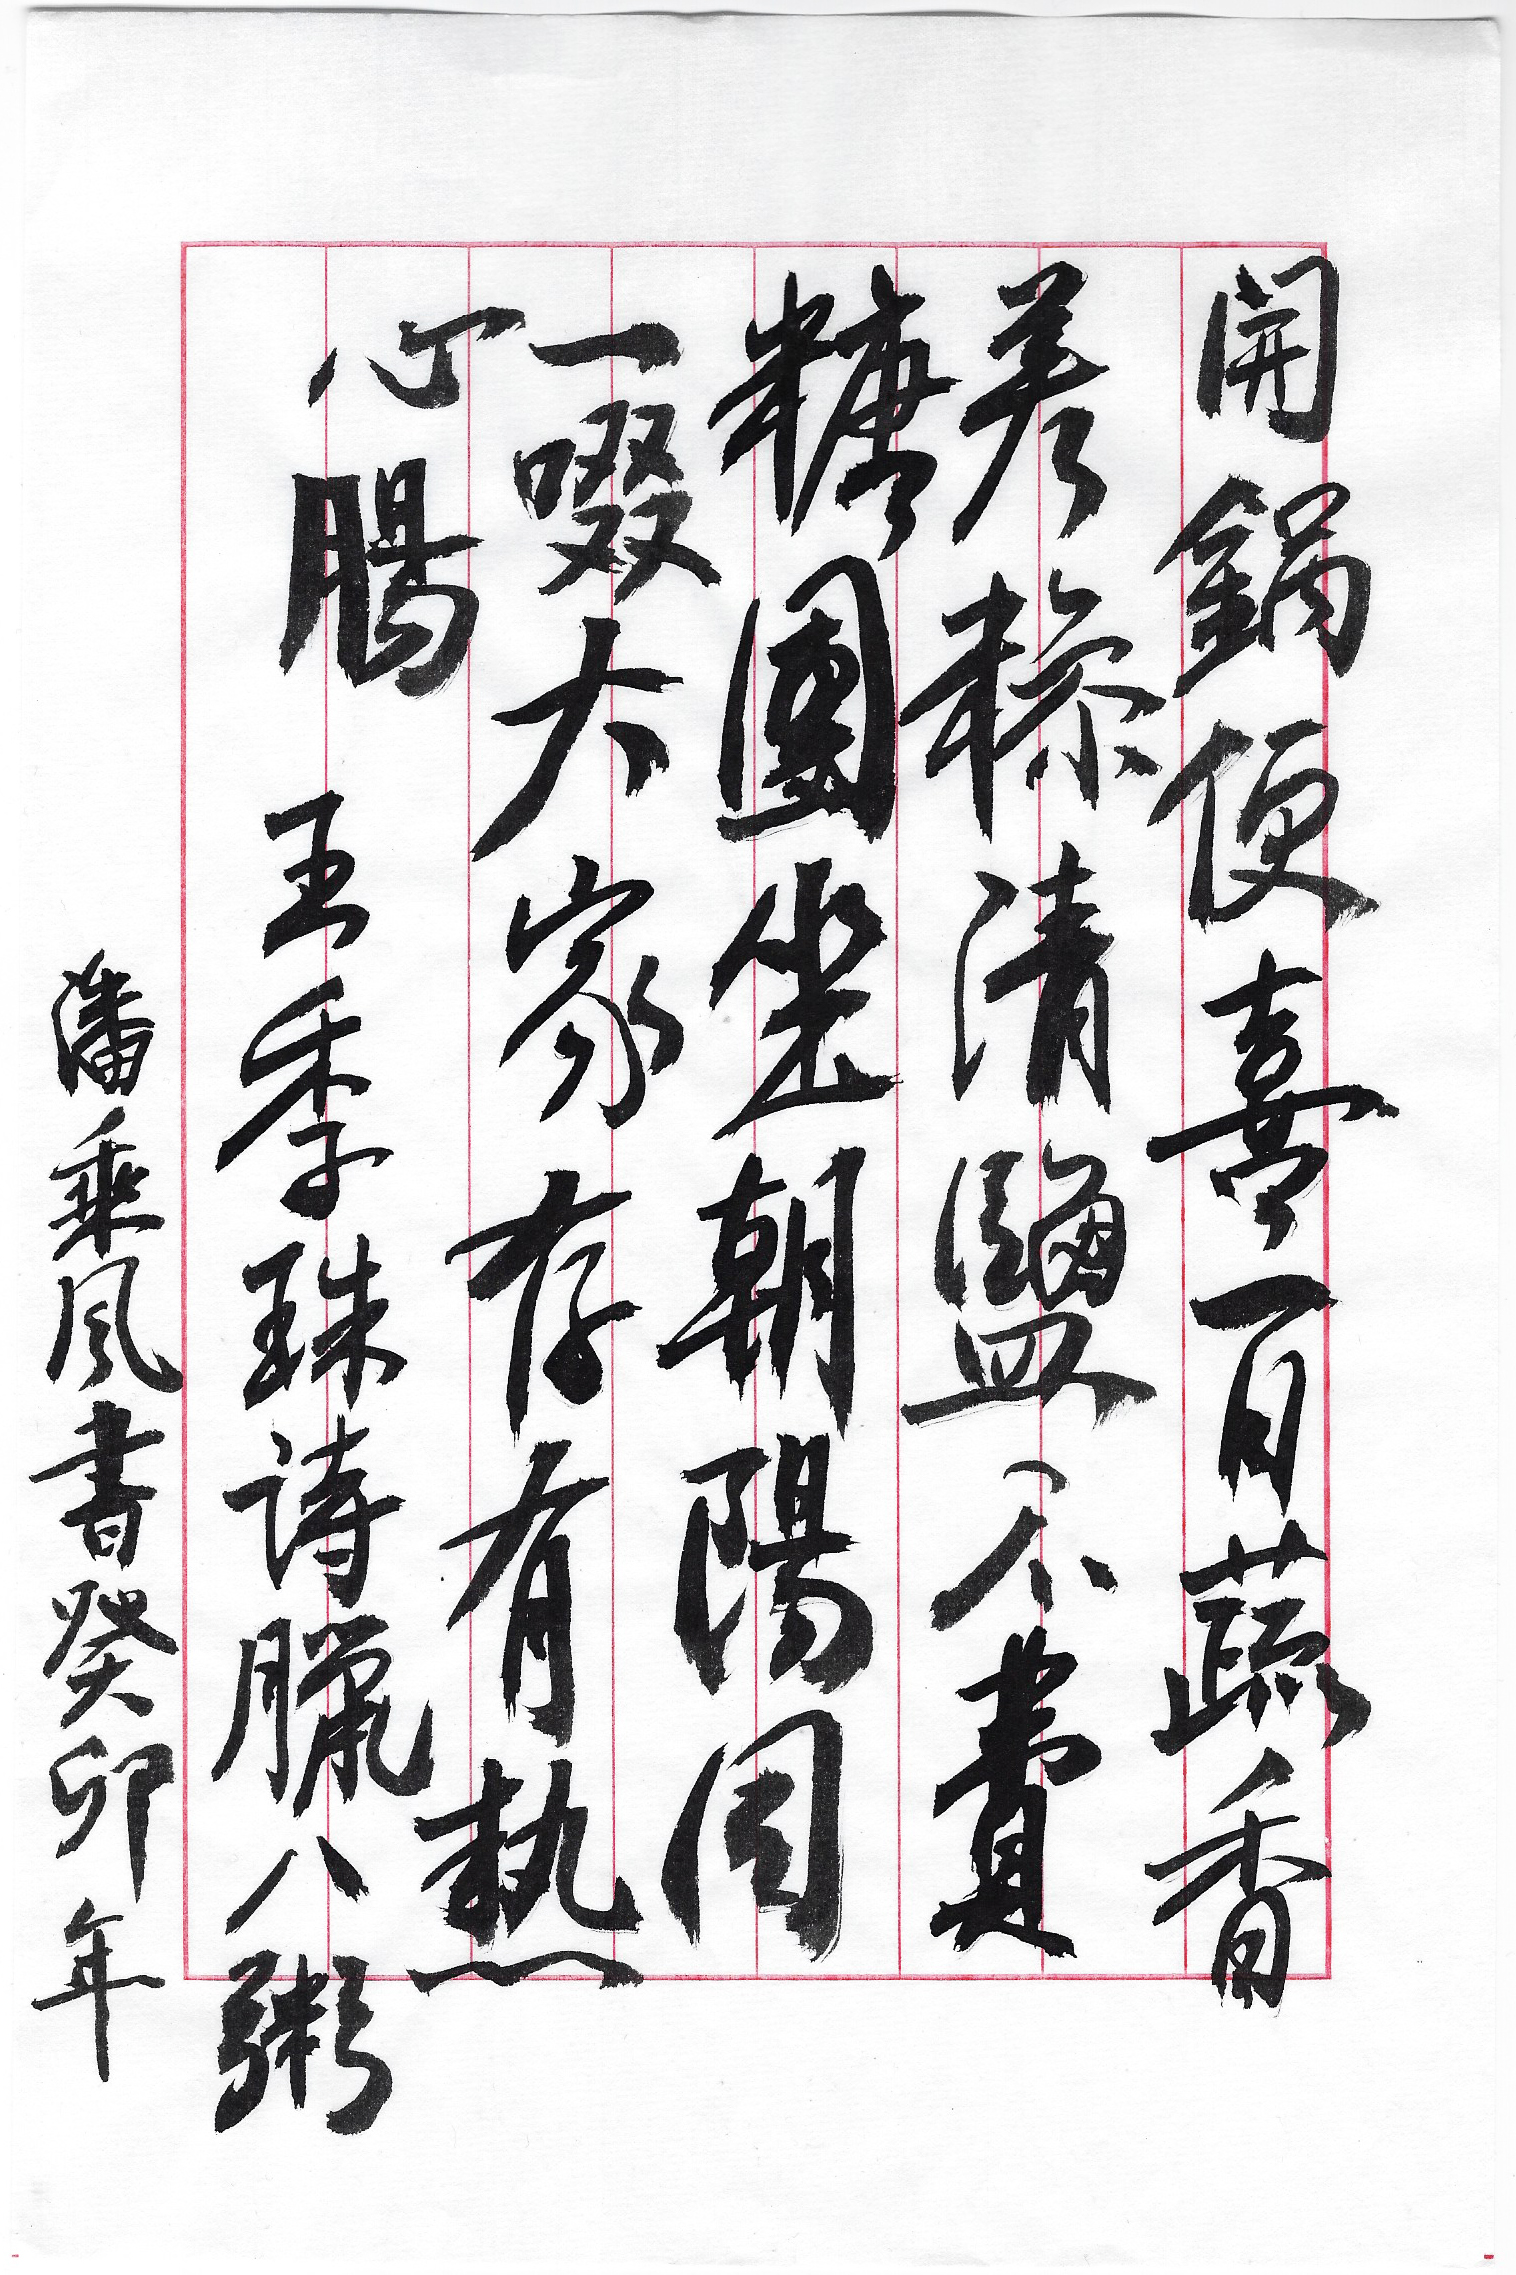 開鍋便喜百蔬香
差糝清鹽不費
糖團坐朝陽同
一啜大家存有熱
心腸 王季珠詩臘八粥
潘乘风書癸卯年